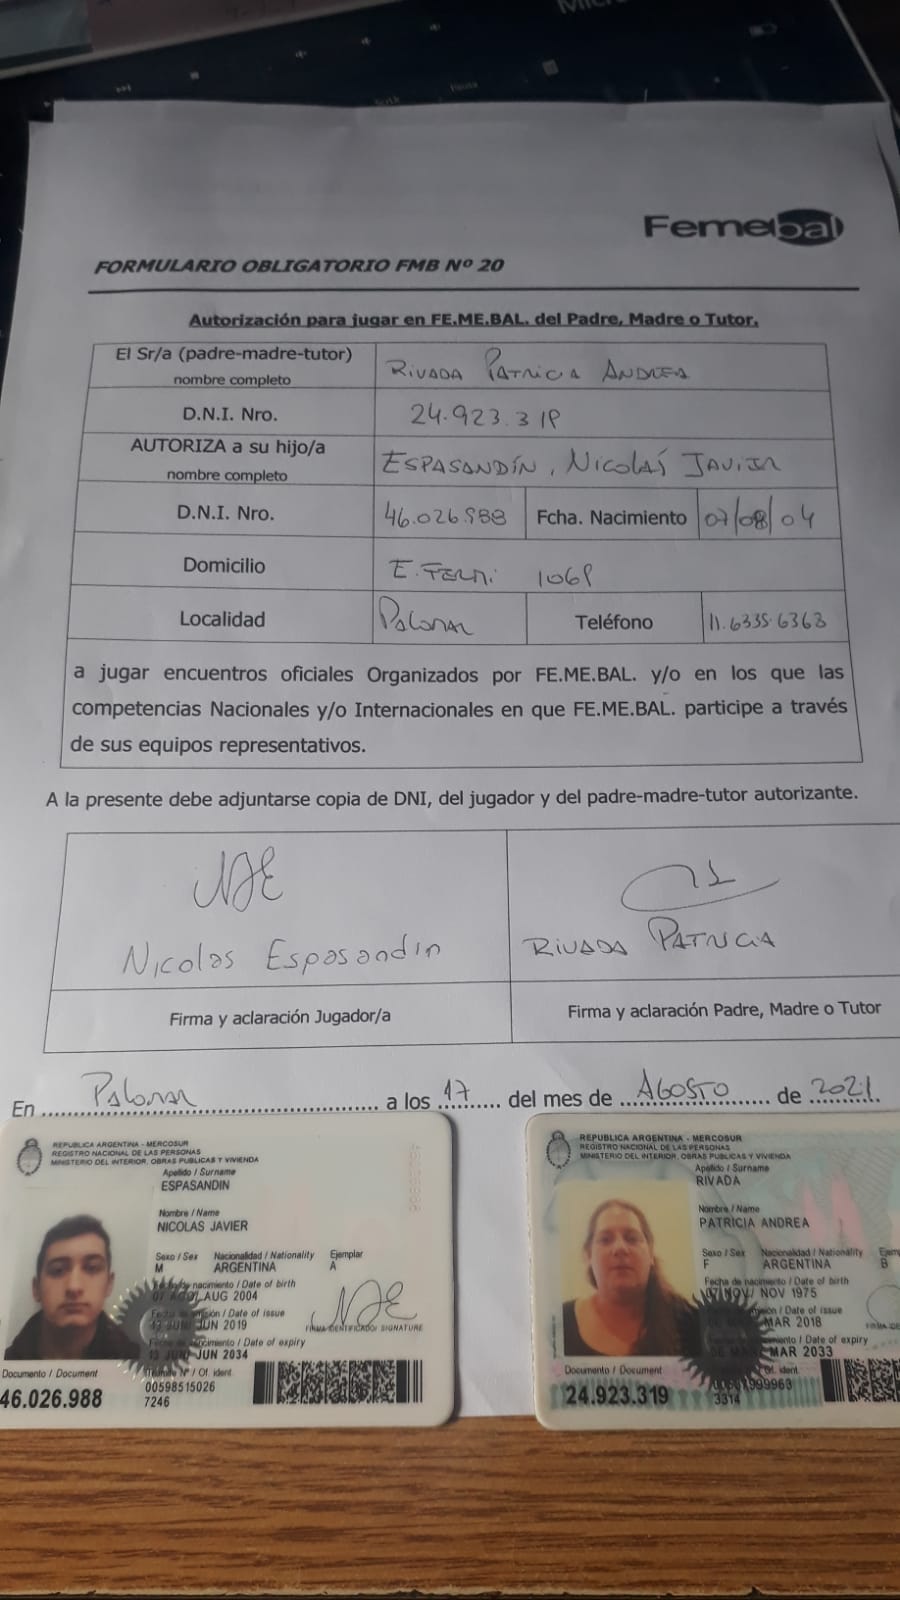 Femebal
FORMULARIO OBLIGATORIO FMB Nº 20
Autorización para jugar en FE.ME.BAL. del Padre, Madre o Tutor.
El Sr/a (padre-madre-tutor)
nombre completo
RIVADA PATRICIA ANDREA
D.N.I. Nro.
24.923.319
AUTORIZA a su hijo/a
nombre completo
ESPASANDÍN, NICOLÁS JAVIER
D.N.I. Nro. 46.026.988 Fcha. Nacimiento 07/08/04
Domicilio E. FERMI 1069
Localidad PALOMAR Teléfono 11.6335.6363
a jugar encuentros oficiales Organizados por FE.ME.BAL. y/o en los que las
competencias Nacionales y/o Internacionales en que FE.ME.BAL. participe a través
de sus equipos representativos.
A la presente debe adjuntarse copia de DNI, del jugador y del padre-madre-tutor autorizante.
NJE
Nicolas Espasandin
RIVADA PATRICIA
Firma y aclaración Jugador/a
Firma y aclaración Padre, Madre o Tutor
En PALOMAR a los 17 del mes de AGOSTO de 2021.
REPUBLICA ARGENTINA - MERCOSUR
REGISTRO NACIONAL DE LAS PERSONAS
MINISTERIO DEL INTERIOR, OBRAS PUBLICAS Y VIVIENDA
Apellido / Surname
ESPASANDIN
Nombre / Name
NICOLAS JAVIER
Sexo / Sex Nacionalidad / Nationality Ejemplar
M ARGENTINA A
Fecha de nacimiento / Date of birth
07 AGO/ AUG 2004
/ Date of issue
JUN 2019
FIRMA IDENTIFICADO/ SIGNATURE
/ Date of expiry
JUN 2034
Documento / Document
46.026.988
/ Of. ident.
00598515026
7246
REPUBLICA ARGENTINA - MERCOSUR
REGISTRO NACIONAL DE LAS PERSONAS
MINISTERIO DEL INTERIOR, OBRAS PUBLICAS Y VIVIENDA
Apellido / Surname
RIVADA
Nombre / Name
PATRICIA ANDREA
Sexo / Sex Nacionalidad / Nationality
F ARGENTINA B
Fecha de nacimiento / Date of birth
NOV 1975
/ Date of issue
MAR 2018
/ Date of expiry
MAR 2033
Documento / Document
24.923.319
/ Of. ident.
3314